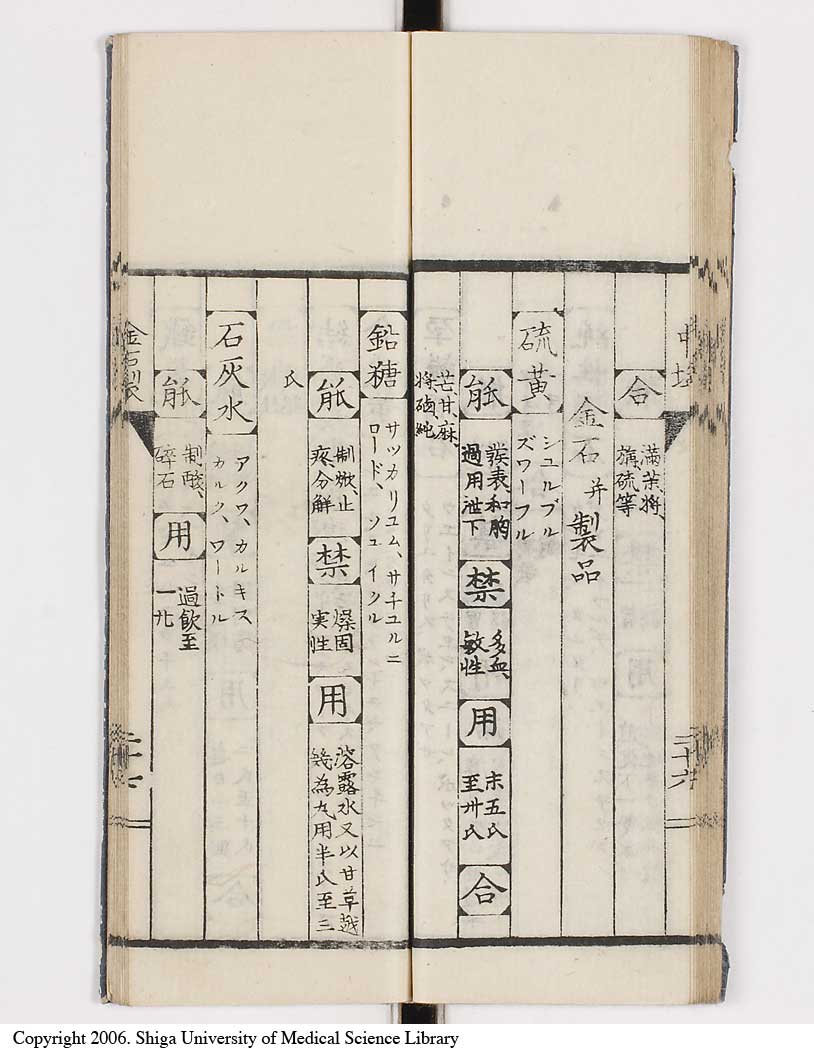 合
満、芙、将、
旃、硫等
金石并製品
硫黄
シユルブル
ズワーフル
能
発表、和胸
過用泄下
禁
多血、
敏性
用
末五氏
至卅氏
合
芒、甘、麻、
将、硇、純
鉛糖
サツカリユム、サチユルニ
ロード、シユイクル
能
制焮、止
疼、分解
禁
燥固
実性
用
溶露水又以甘草越
幾為丸用半氏至三
氏
石灰水
アクワ、カルキス
カルク、ワートル
能
制酸、
碎石
用
過飲至
金石製
二十六
Copyright 2006. Shiga University of Medical Science Library